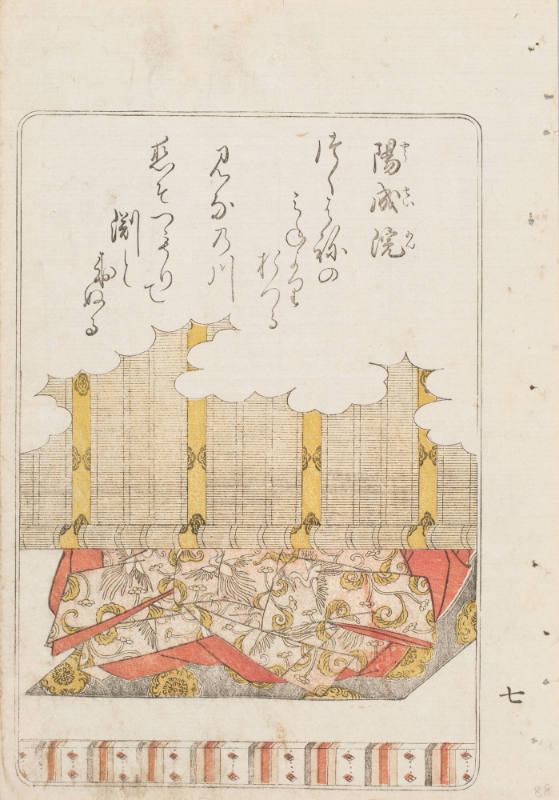 陽成院
つくはねの
みねより
おつる
みなの川
恋そつもりて
淵と
なりぬる
七
88